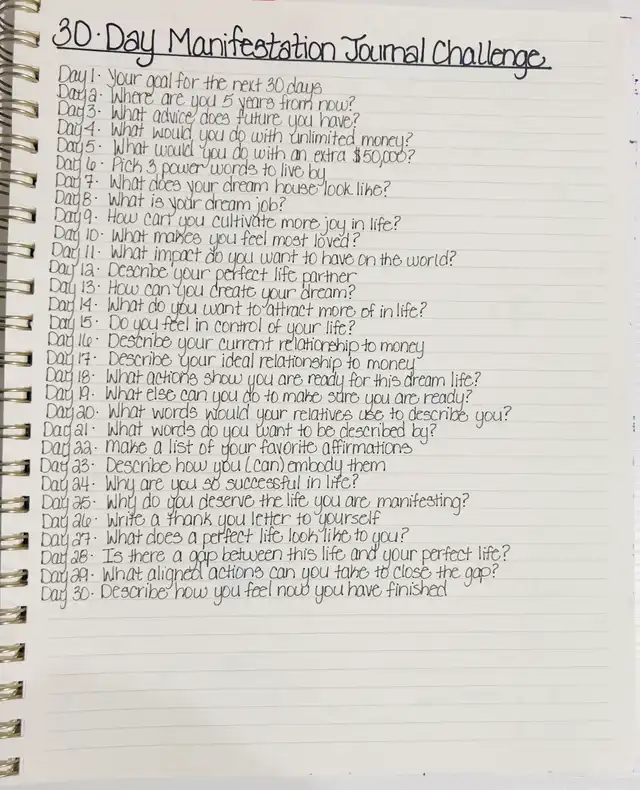 30-Day Manifestation Journal Challenge
Day 1- Your goal for the next 30 days
Day 2- Where are you 5 years from now?
Day 3- What advice does future you have?
Day 4- What would you do with unlimited money?
Day 5- What would you do with an extra $50,000?
Day 6- Pick 3 power words to live by
Day 7- What does your dream house look like?
Day 8- What is your dream job?
Day 9- How can you cultivate more joy in life?
Day 10- What makes you feel most loved?
Day 11- What impact do you want to have on the world?
Day 12- Describe your perfect life partner
Day 13- How can you create your dream?
Day 14- What do you want to attract more of in life?
Day 15- Do you feel in control of your life?
Day 16- Describe your current relationship to money
Day 17- Describe your ideal relationship to money
Day 18- What actions show you are ready for this dream life?
Day 19- What else can you do to make sure you are ready?
Day 20- What words would your relatives use to describe you?
Day 21- What words do you want to be described by?
Day 22- Make a list of your favorite affirmations
Day 23- Describe how you (can) embody them
Day 24- Why are you so successful in life?
Day 25- Why do you deserve the life you are manifesting?
Day 26- Write a thank you letter to yourself
Day 27- What does a perfect life look like to you?
Day 28- Is there a gap between this life and your perfect life?
Day 29- What aligned actions can you take to close the gap?
Day 30- Describe how you feel now you have finished